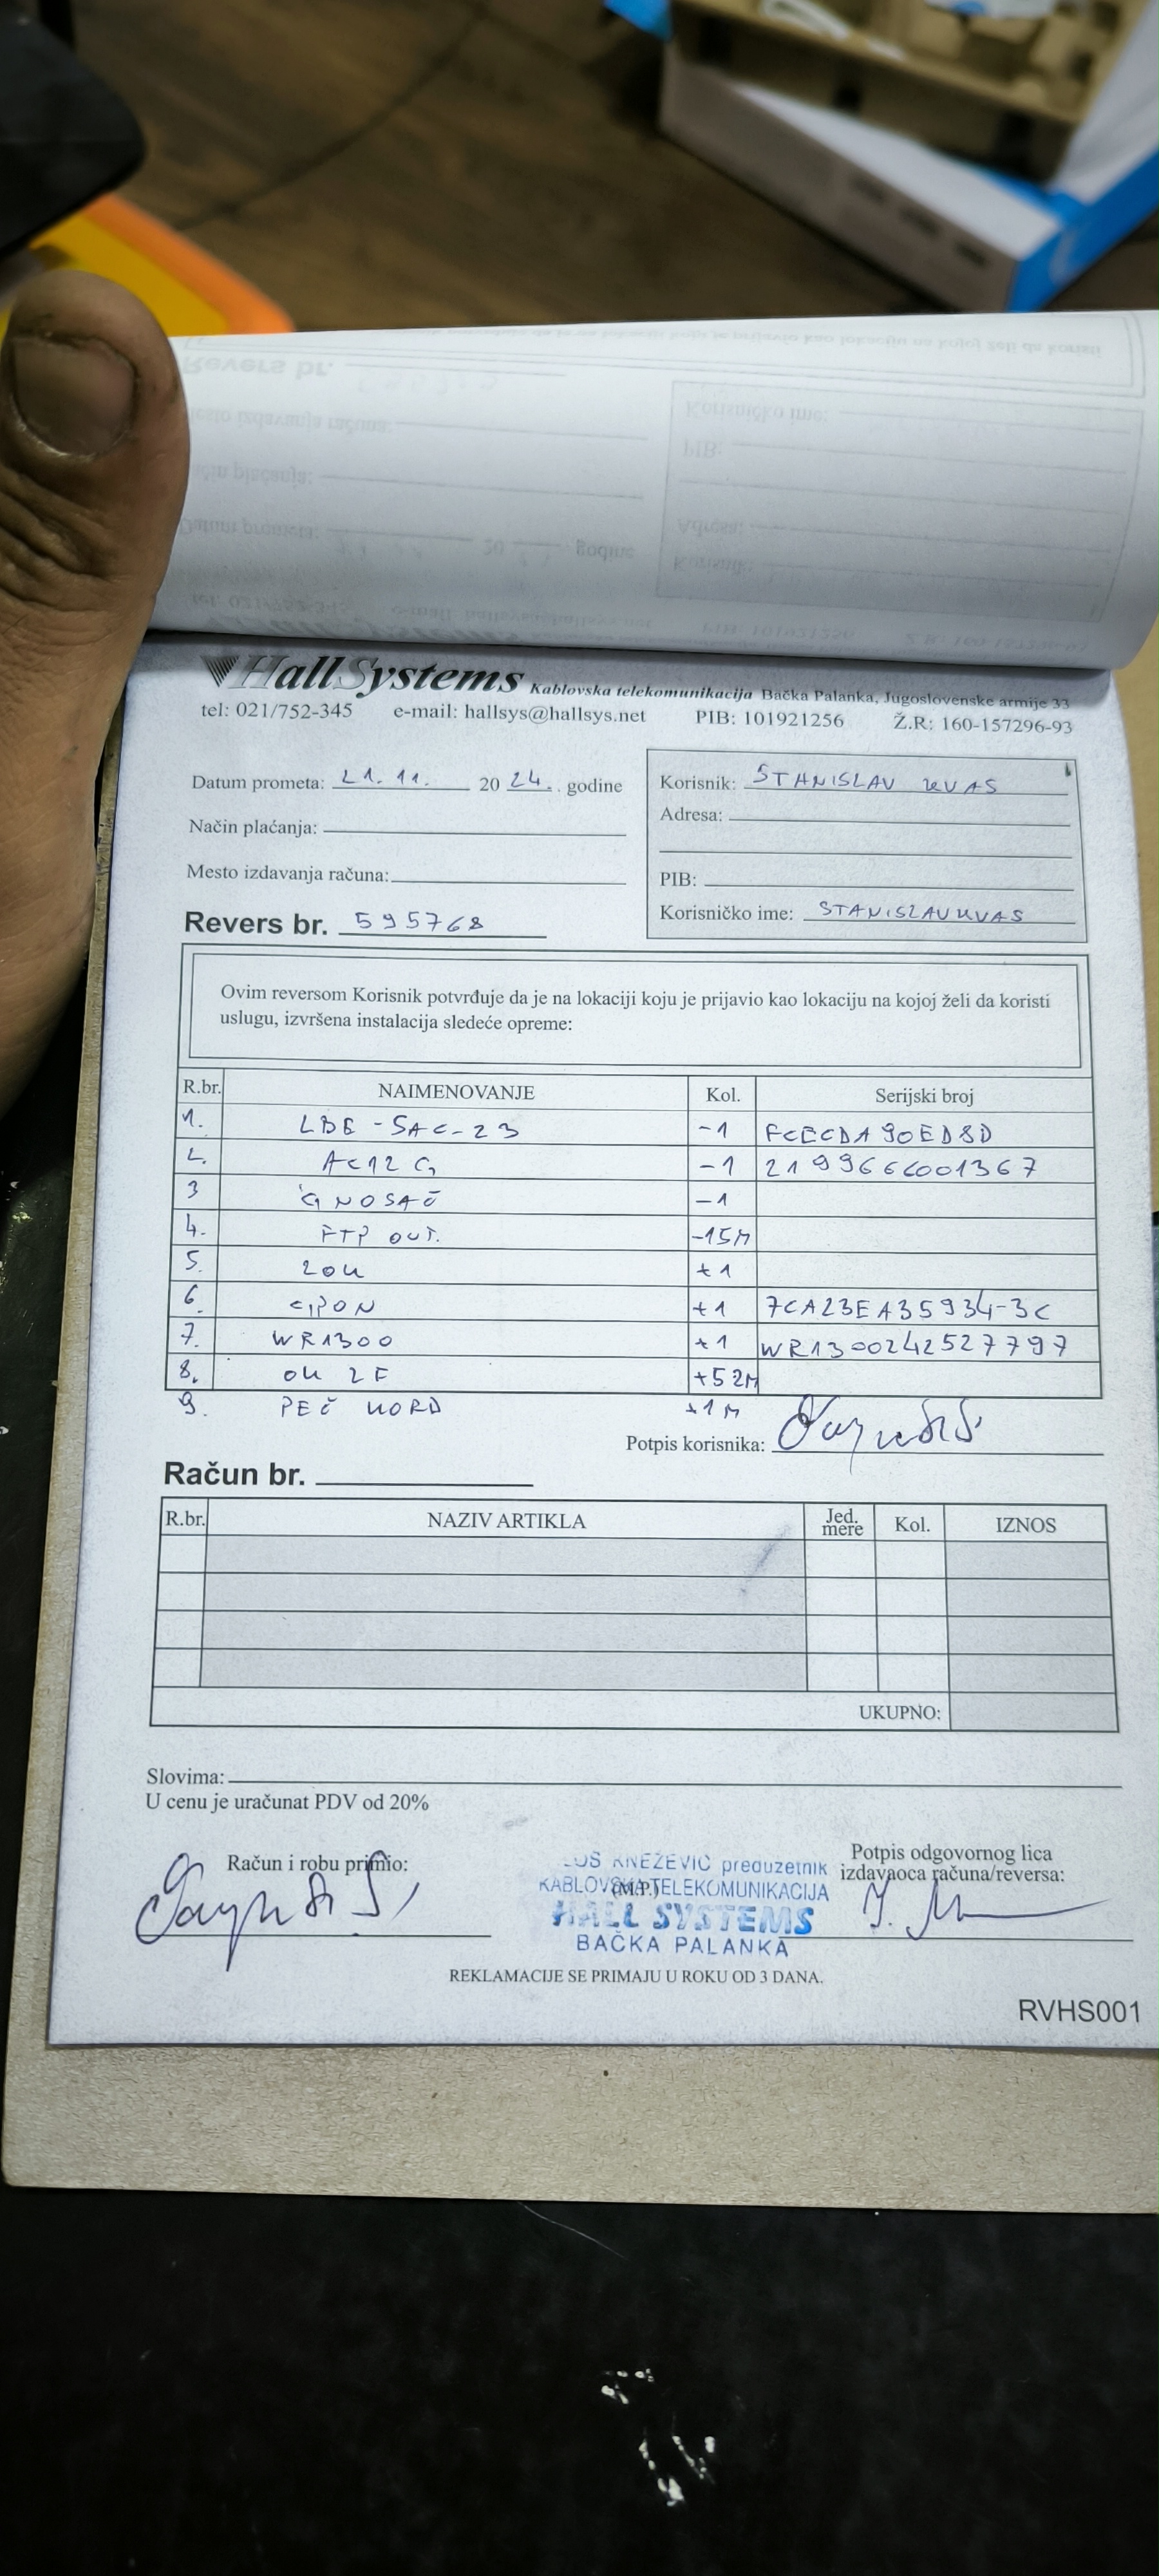 HallSystems Kablovska telekomunikacija Bačka Palanka, Jugoslovenske armije 33
tel: 021/752-345 e-mail: hallsys@hallsys.net PIB: 101921256 Ž.R: 160-157296-93
Datum prometa: 21.11. 20 24. godine
Način plaćanja:
Mesto izdavanja računa:
Revers br. 595768
Korisnik: STANISLAV KVAS
Adresa:
PIB:
Korisničko ime: STANISLAVKVAS
Ovim reversom Korisnik potvrđuje da je na lokaciji koju je prijavio kao lokaciju na kojoj želi da koristi
uslugu, izvršena instalacija sledeće opreme:
R.br. NAIMENOVANJE Kol. Serijski broj
1. LBE-5AC-23 -1 FCECDA90ED8D
2. AC12G -1 2199666001367
3 G NOSAČ -1
4. FTP OUT. -15M
5. ZOK +1
6. GPON +1 7CA23EA35934-3C
7. WR1300 +1 WR1300242527797
8. OK 2F +52M
9. PEČ KORD +1M
Potpis korisnika:
Račun br.
R.br. NAZIV ARTIKLA Jed. mere Kol. IZNOS
UKUPNO:
Slovima:
U cenu je uračunat PDV od 20%
Račun i robu primio:
KNEŽEVIĆ preduzetnik
KABLOVSKA TELEKOMUNIKACIJA
(M.P.)
HALL SYSTEMS
BAČKA PALANKA
Potpis odgovornog lica
izdavaoca računa/reversa:
REKLAMACIJE SE PRIMAJU U ROKU OD 3 DANA.
RVHS001